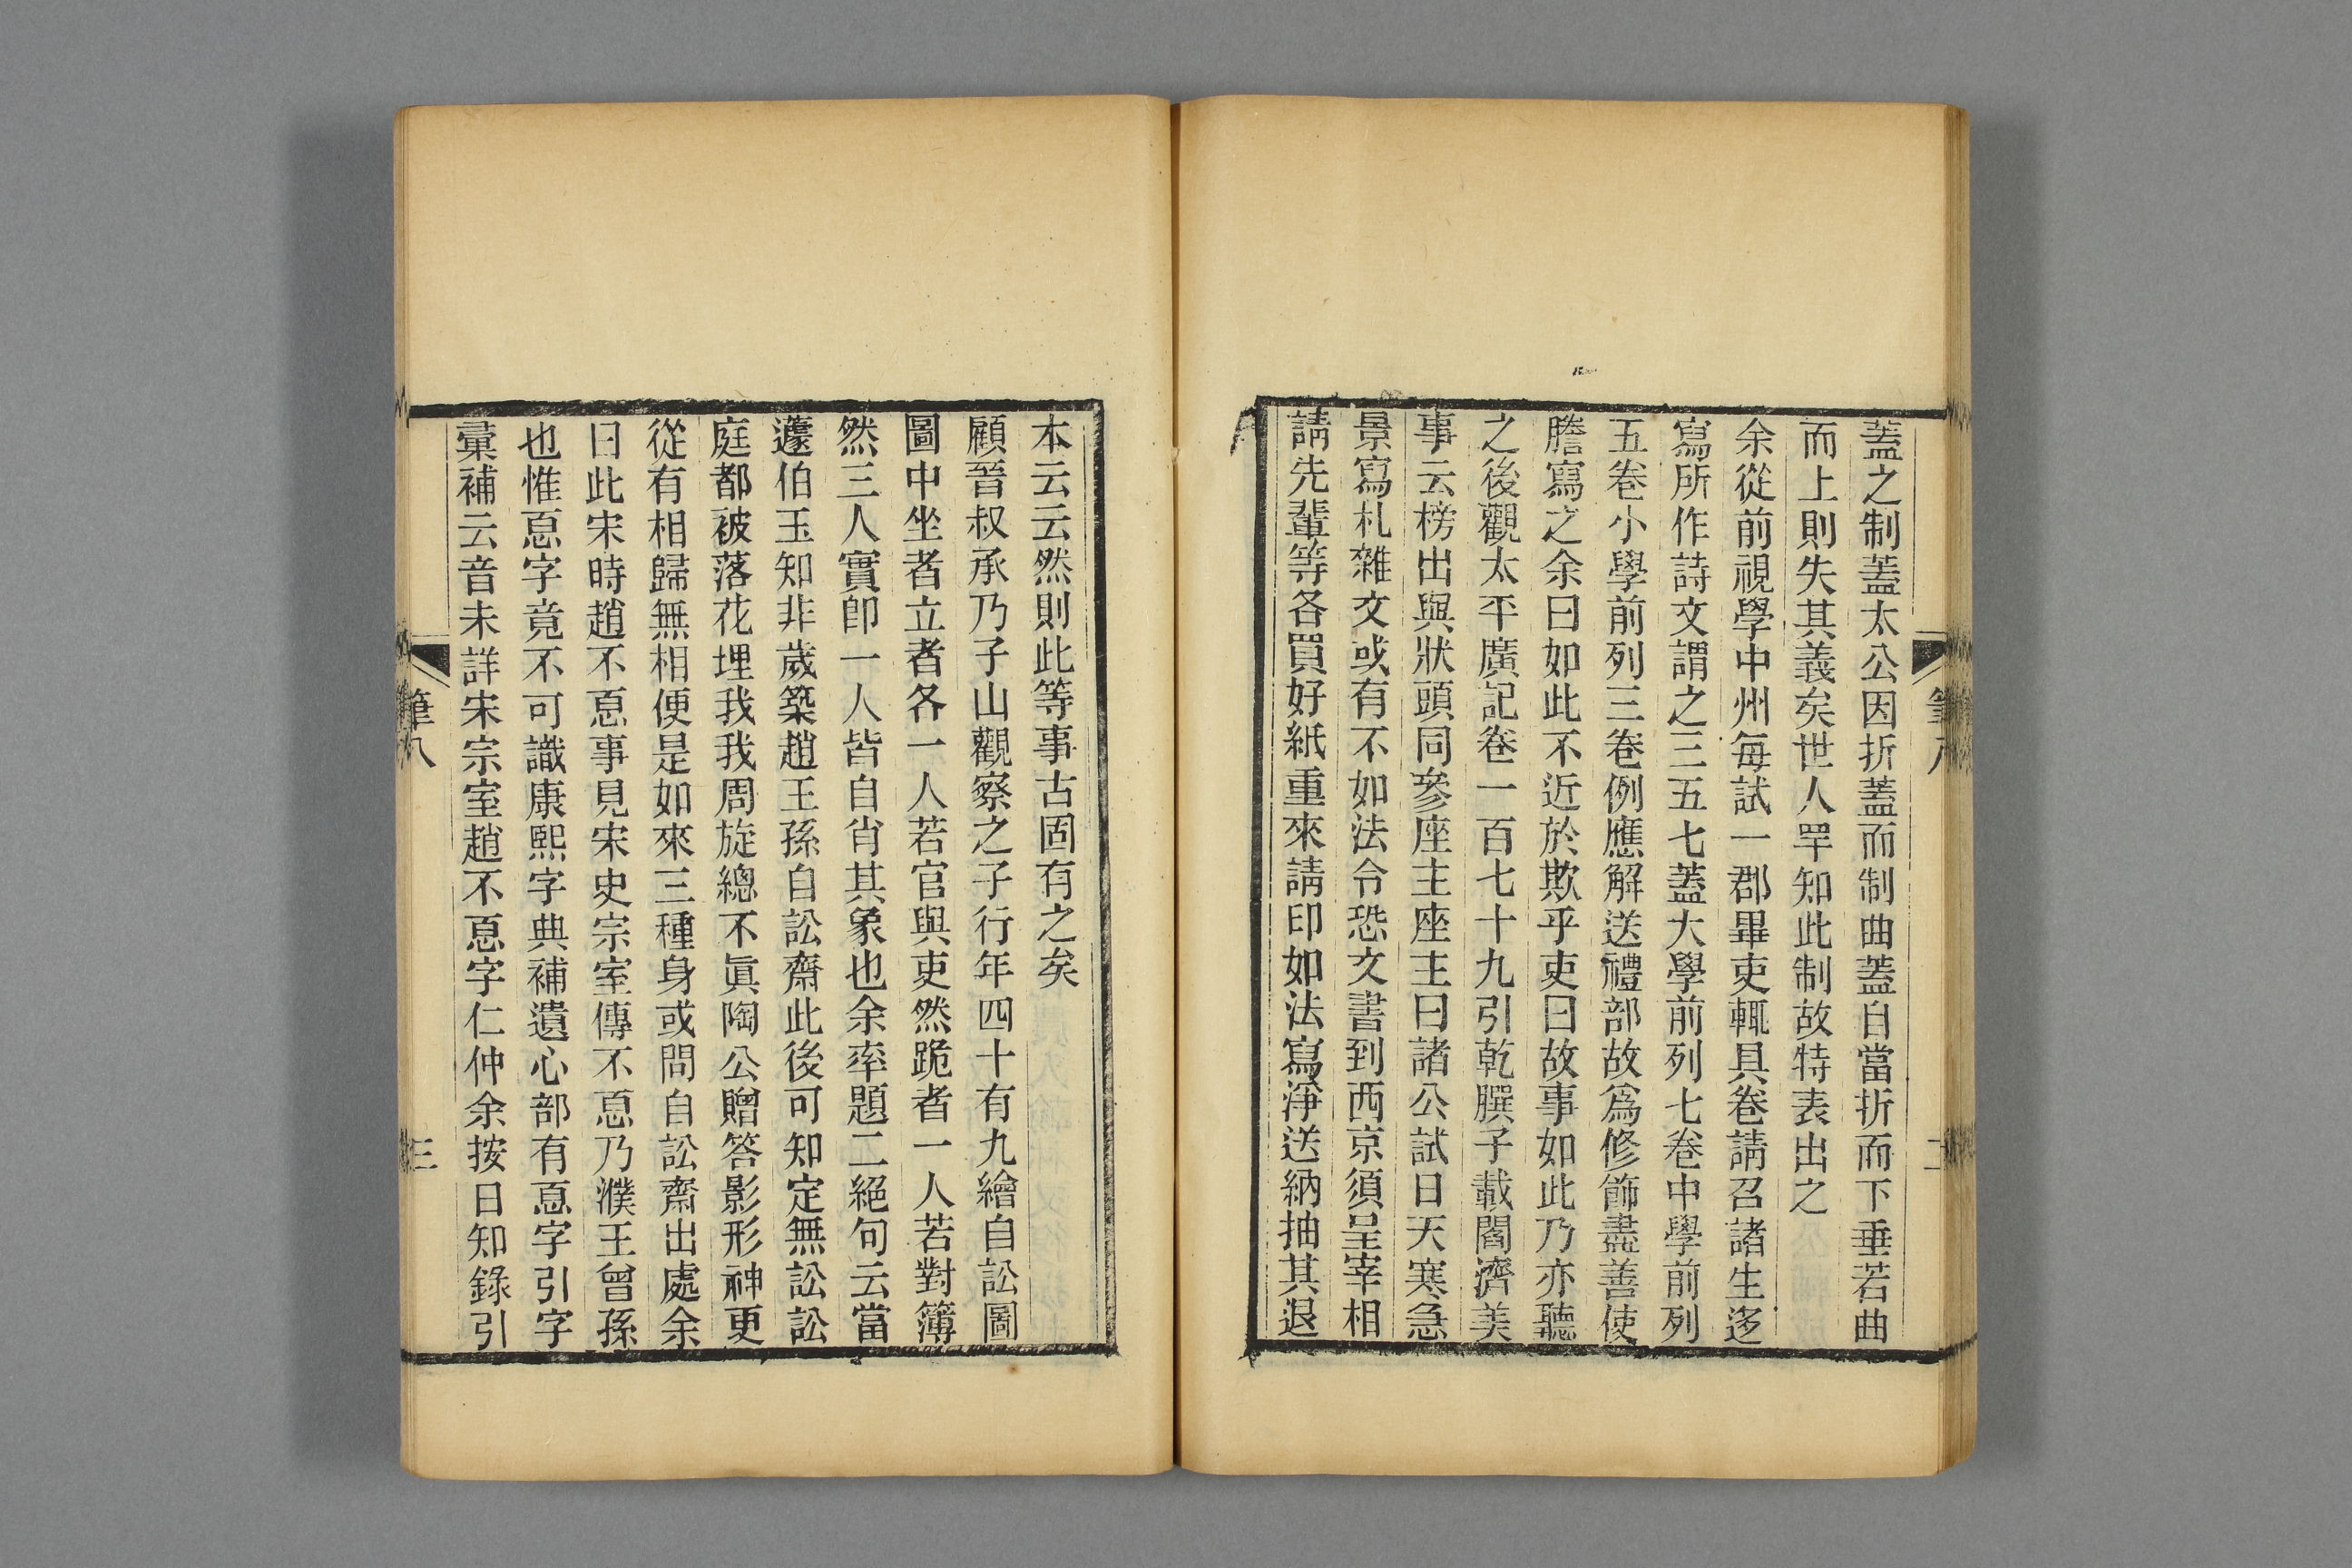 蓋之制蓋太公因折蓋而制曲蓋自當折而下垂若曲
而上則失其義矣世人罕知此制故特表出之
余從前視學中州每試一郡畢吏輒具卷請召諸生迻
寫所作詩文謂之三五七蓋大學前列七卷中學前列
五卷小學前列三卷例應解送禮部故為修飾盡善使
謄寫之余曰如此不近於欺乎吏曰故事如此乃亦聽
之後觀太平廣記卷一百七十九引乾𦠆子載閻濟美
事云榜出與狀頭同參座主座主曰諸公試日天寒急
景寫札雜文或有不如法令恐文書到西京須呈宰相
請先輩等各買好紙重來請印如法寫淨送納抽其退
本云云然則此等事古固有之矣
顧晉叔承乃子山觀察之子行年四十有九繪自訟圖
圖中坐者立者各一人若官與吏然跪者一人若對簿
然三人實卽一人皆自肖其象也余率題二絕句云當
蘧伯玉知非歲築趙王孫自訟齋此後可知定無訟訟
庭都被落花埋我我周旋總不眞陶公贈答影形神更
從有相歸無相便是如來三種身或問自訟齋出處余
曰此宋時趙不息事見宋史宗室傳不息乃濮王曾孫
也惟息字竟不可識康熙字典補遺心部有息字引字
彙補云音未詳宋宗室趙不息字仁仲余按日知錄引
筆八
三